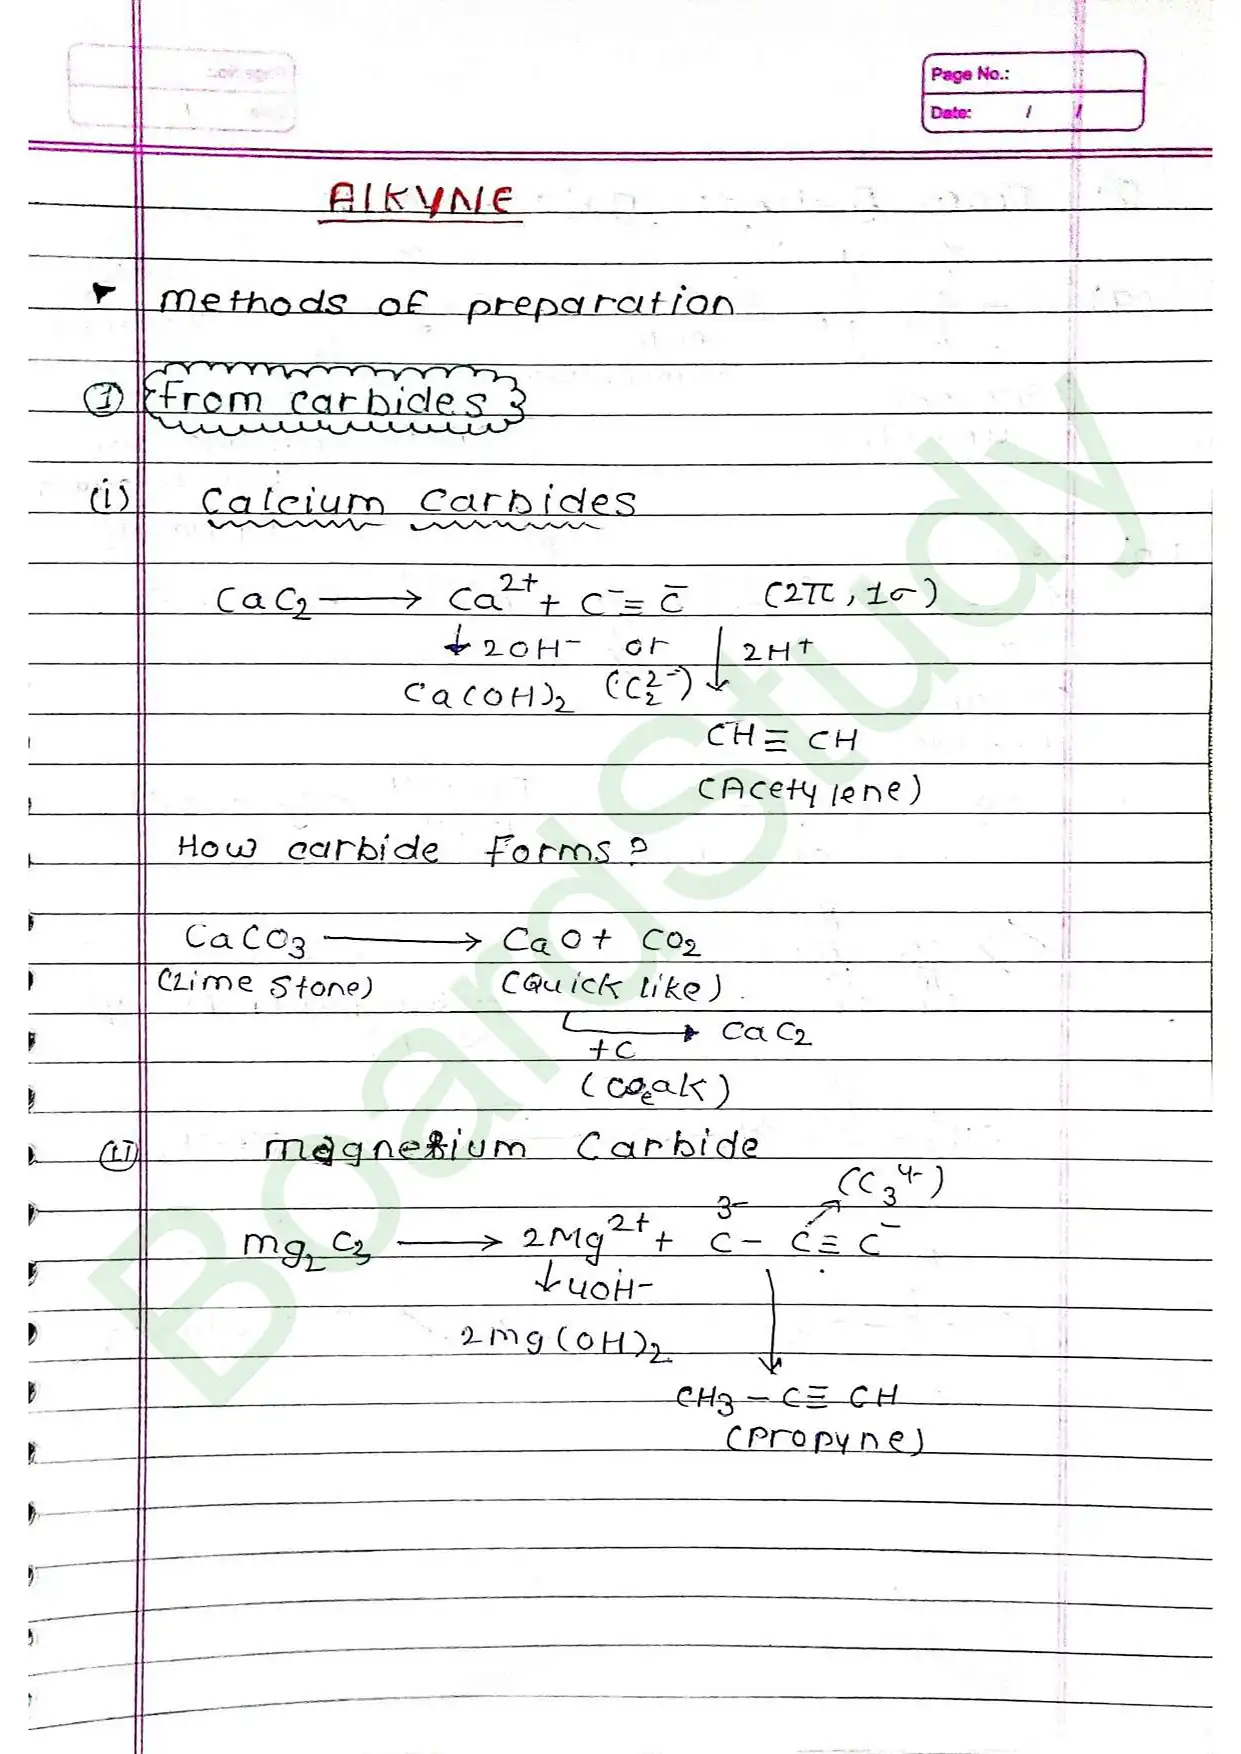 Page No.:
Date: / /
AlKYNE
methods of preparation
① From carbides
(i) Calcium Carbides
CaC₂ ⟶ Ca²⁺ + C⁻≡C̄ (2π, 1σ)
↓ 2OH⁻ or ↓ 2H⁺
Ca(OH)₂ (C₂²⁻)
CH≡CH
(Acetylene)
How carbide forms?
CaCO₃ ⟶ CaO + CO₂
(Lime Stone) (Quick like)
+C → CaC₂
(ii) magnesium Carbide
(C₃⁴⁻)
mg₂C₃ ⟶ 2Mg²⁺ + C³⁻ – C≡C⁻
↓ 4OH⁻
2mg(OH)₂
CH₃ – C≡CH
(Propyne)
BoardStudy